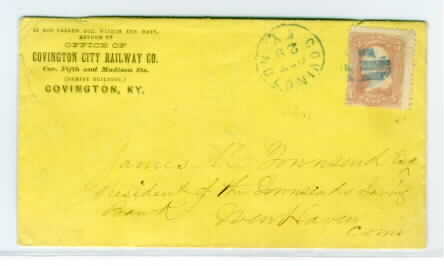 IF NOT CALLED FOR WITHIN TEN DAYS,
RETURN TO
OFFICE OF
COVINGTON CITY RAILWAY CO.
Cor. Fifth and Madison Sts.
COVINGTON, KY.
COVINGTON KY
James Townsend Esq
President of the Townsend Saving
Bank New Haven
Conn